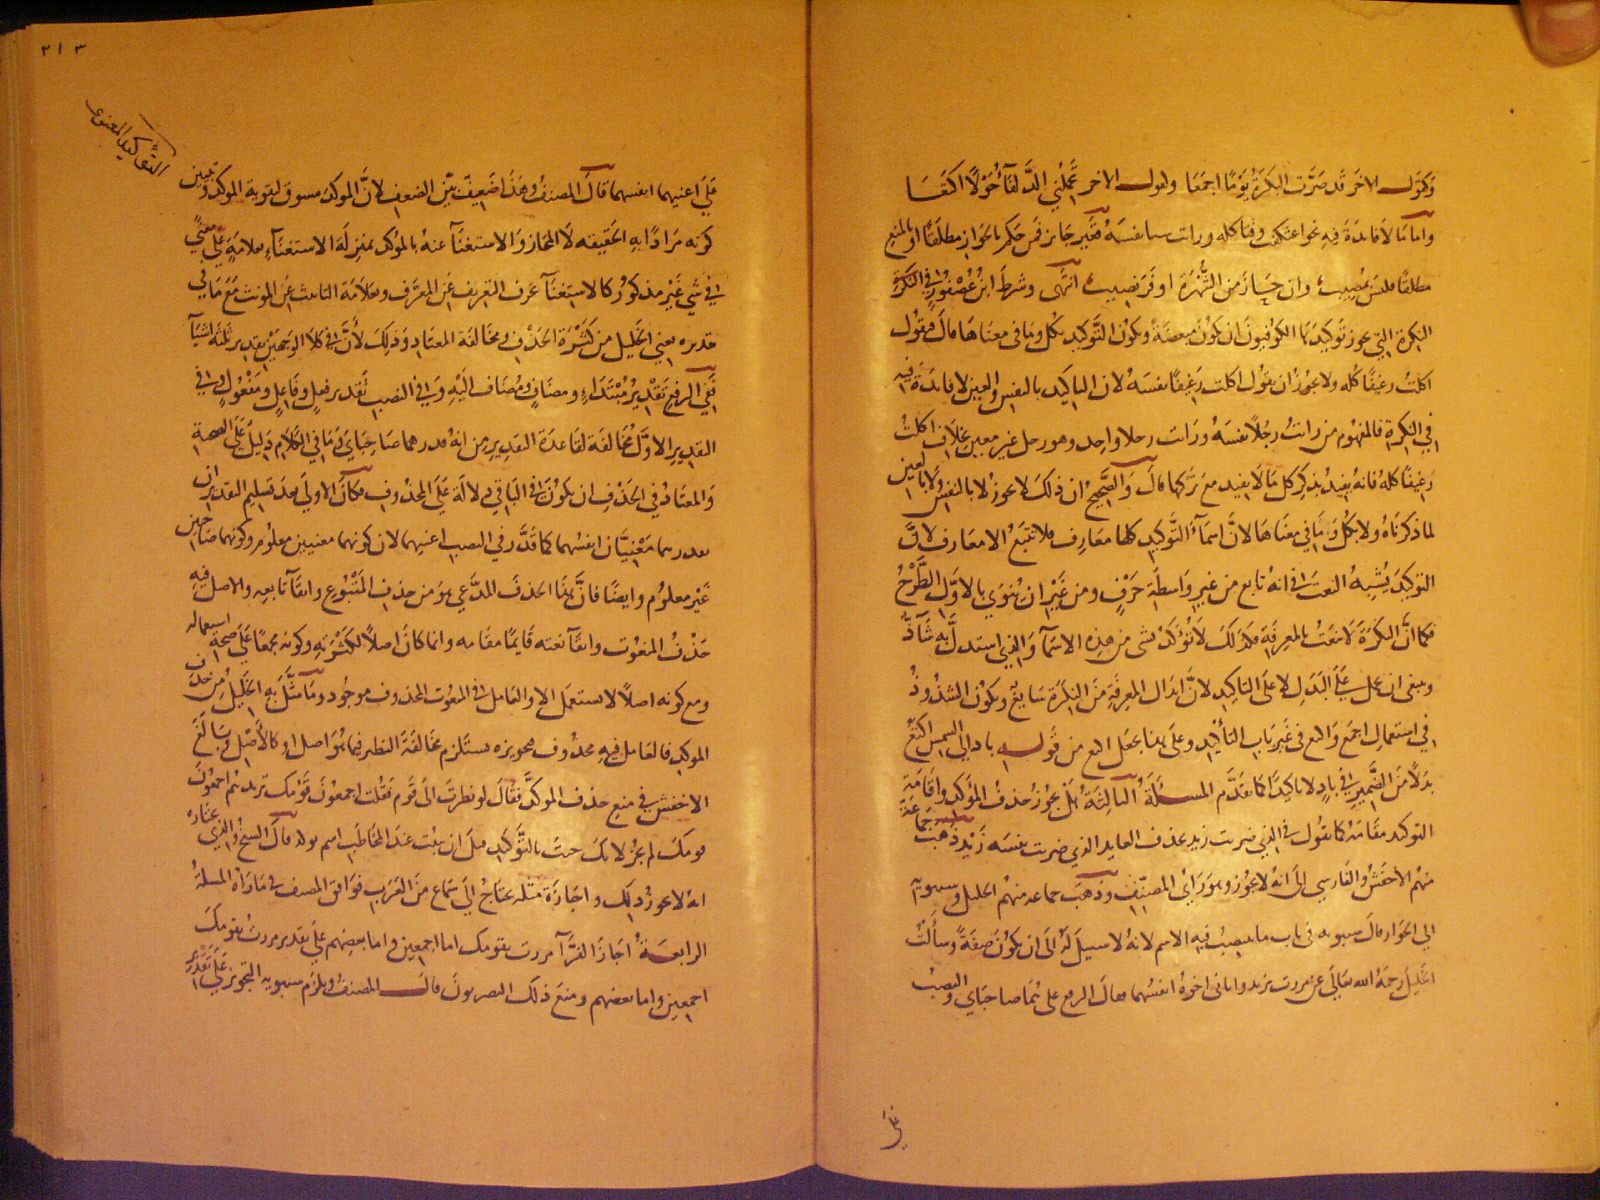 وكقول الاخر قد صرت البكرة يوما اجمعا ولقول الاخر تحملني الذلفا حولا اكتعا
واما ما لا فائدة فيه نحو اعتكفت وقتا كله ورايت شيا نفسه فغير جايز فمن حكم بالجواز مطلقا او بالمنع
مطلقا فليس بمصيب وان حاز من الشهرة اوفر نصيب انتهى وشرط ابن عصفور في النكرة
النكرة التي يجوز توكيدها الكوفيون ان يكون مبعضة ويكون التوكيد بكل وما في معناها قال فيقول
اكلت رغيفا كله ولا يجوز ان يقول اكلت رغيفا نفسه لان التاكيد بالنفس والعين لا فائدة فيه
في النكرة فالمفهوم من رايت رجلا نفسه ورايت رجلا واحد وهو رجل غير معين بخلاف اكلت
رغيفا كله فانه يفيد بذكر كل ما لا يفيد مع تركها قال والصحيح ان ذلك لا يجوز لا بالنفس ولا بالعين
لما ذكرناه ولا بكل وما في معناها لان اسماء التوكيد كلها معارف فلا تتبع الا المعارف لان
التوكيد يشبه النعت في انه تابع من غير واسطة حرف ومن غير ان ينوى بالاول الطرح
فكما ان النكرة لا تنعت بالمعرفة فكذلك لا تؤكد بشي من هذه الاسماء والذي استدل به شاذ
وينبغي ان يحمل على البدل لا على التاكيد لان ابدال المعرفة من النكرة سايغ ويكون الشذوذ
في استعمال اجمع واكتع في غير باب التاكيد وعلى هذا يحمل اكتع من قوله
بدلا من الضمير في باد لا تاكيدا كما تقدم المسئلة الثالثة هل يجوز حذف المؤكد واقامة
التوكيد مقامه كما تقول في الذي ضربت زيد بحذف العايد الذي ضربت نفسه زيد ذهب جماعة
منهم الاخفش والفارسي الى انه لا يجوز وهو راي المصنف وذهب جماعه منهم الخليل وسيبويه
الى الجواز قال سيبويه في باب ما ينصب فيه الاسم لانه لا سبيل له الى ان يكون صفة وسألت
الخليل رحمه الله تعالى عن مررت بزيد واتاني اخوه انفسهما فقال الرفع على هما صاحباي والنصب
على
٢١٣
التوكيد المعنوي
على اعنيهما انفسهما قال المصنف وهذا ضعيف بين الضعف لان الموكد مسوق لتقوية الموكد وتبيين
كونه مرادا به الحقيقه لا المجاز والاستغناء عنه بالمؤكد بمنزلة الاستغناء بعلامة على معنى
في شي غير مذكور كالاستغناء بحرف التعريف عن المعرف وبعلامة التانيث عن المونث مع ما في
قدره يعني الخليل من كثرة الحذف ومخالفة المعتاد وذلك لأن في كلا الوجهين تقدير ثلثة اشياء
ففي الرفع تقدير مبتداء ومضاف ومضاف اليه وفي النصب تقدير فعل وفاعل ومفعول وفي
التقدير الاول مخالفة لقاعدة التقدير من انه قدر هما صاحباي وما في الكلام دليل على الصحبة
والمعتاد في الحذف ان يكون في الباقي دلالة على المحذوف فكان الاولى بعد تسليم التقدير ان
يقدر هما معنيان انفسهما كما قدر في النصب اعنيهما لان كونهما معنيين معلوم وكونهما صاحبين
غير معلوم وايضا فان هذا الحذف المدعي هو من حذف المتبوع وابقاء تابعه والاصل فيه
حذف المنعوت وابقاء نعته قايما مقامه وانما كان اصلا لكثرته وكونه مجمعا على صحة استعماله
ومع كونه اصلا لا يستعمل الا والعامل في المنعوت المحذوف موجود وما مثل به الخليل من حذف
الموكد فالعامل فيه محذوف فتجويزه يستلزم مخالفة النظير فيما هو اصل او كالأصل
الاخفش في منع حذف الموكد فقال لو نظرت الى قوم فقلت اجمعون قومك تريد هم اجمعون
قومك لم يجز لانك جيت بالتوكيد قبل ان يثبت عند المخاطب اسم يوكد قال الشيخ والذي نختاره
انه لا يجوز ذلك واجازة مثله تحتاج الى سماع من العرب فوافق المصنف في ما رآه المسئلة
الرابعة اجاز الفرآ مررت بقومك اما اجمعين واما بعضهم على تقدير مررت بقومك
اجمعين واما بعضهم ومنع ذلك البصريون قال المصنف ويلزم سيبويه التجويز على تقدير